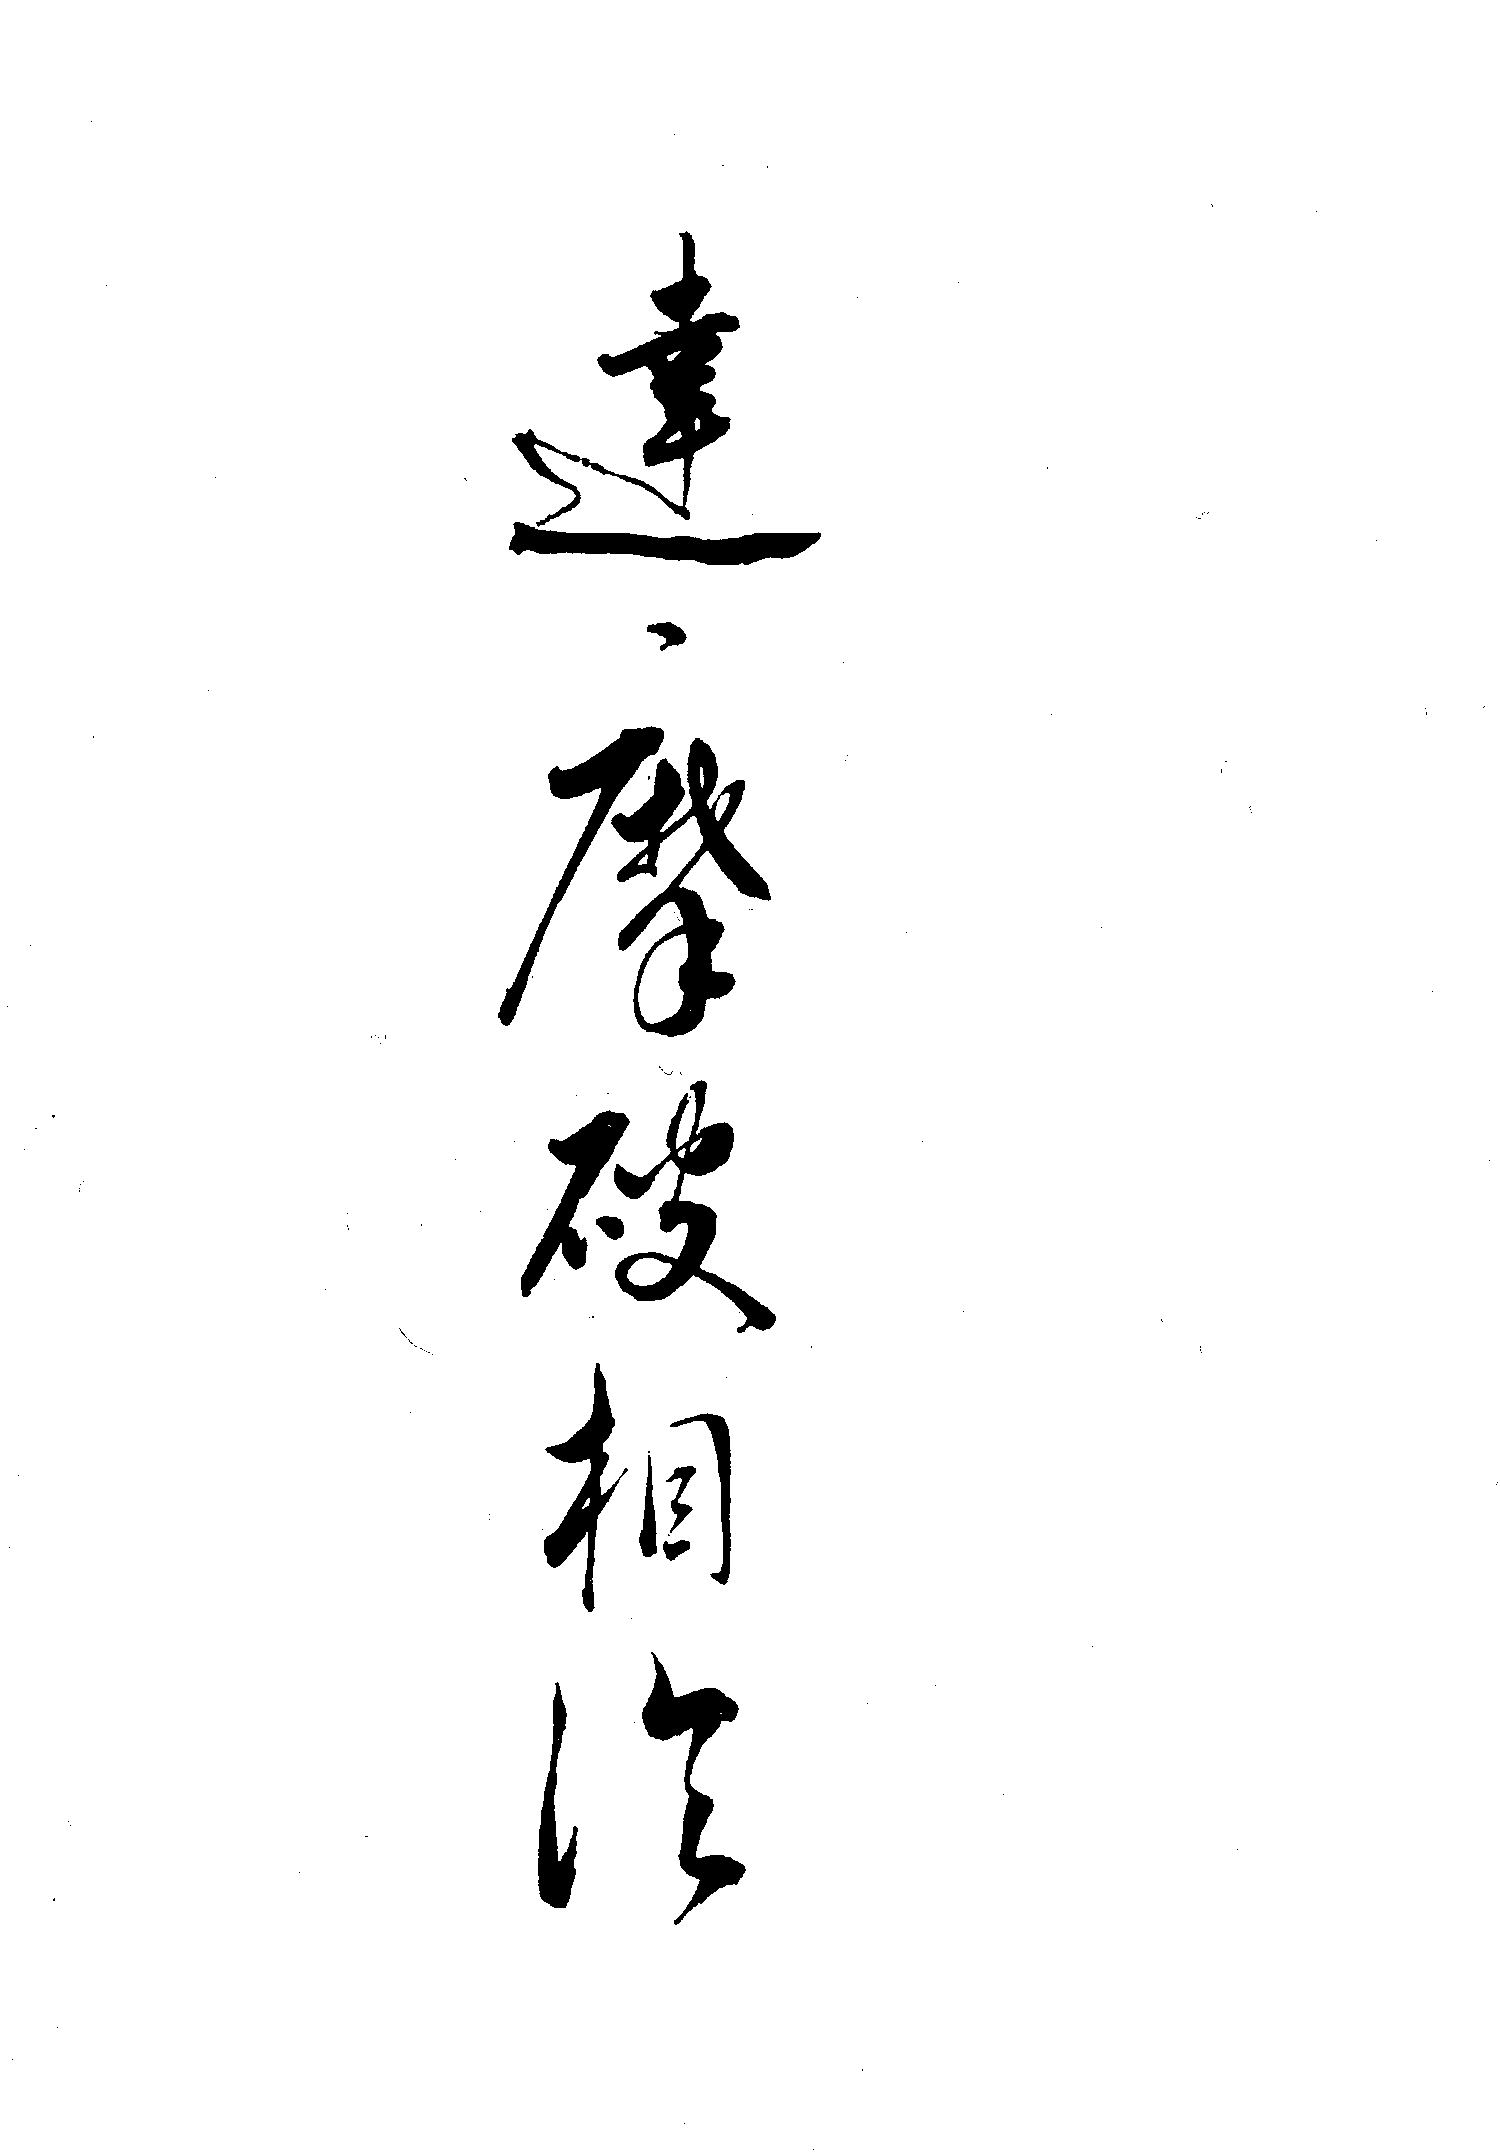 達摩破相論